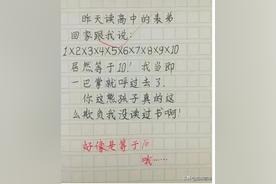 昨天读高中的表弟
回家跟我说:
1×2×3×4×5×6×7×8×9×10
居然等于10!我当即
一巴掌就呼过去了.
你这熊孩子真的这
么欺负我没读过书啊!
好像是等于10
哦……